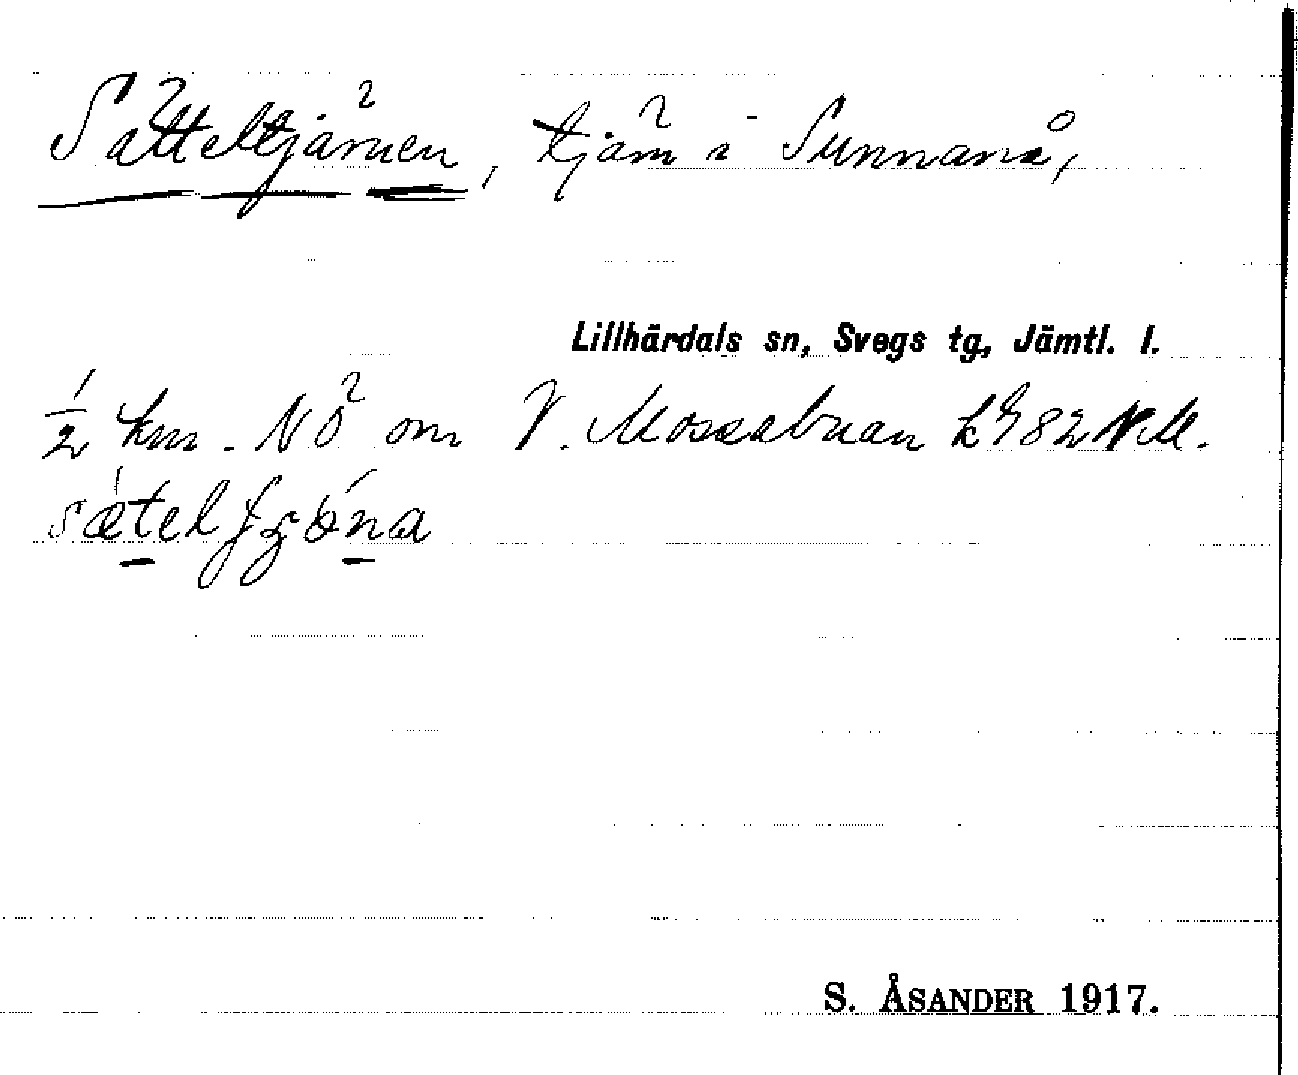 Sätteltjärnen, tjärn i Sunnanå,
Lillhärdals sn, Svegs tg, Jämtl. l.
1/2 km. NÖ om V. Mosssabuan
sǽtel fʒǿna
S. ÅSANDER 1917.